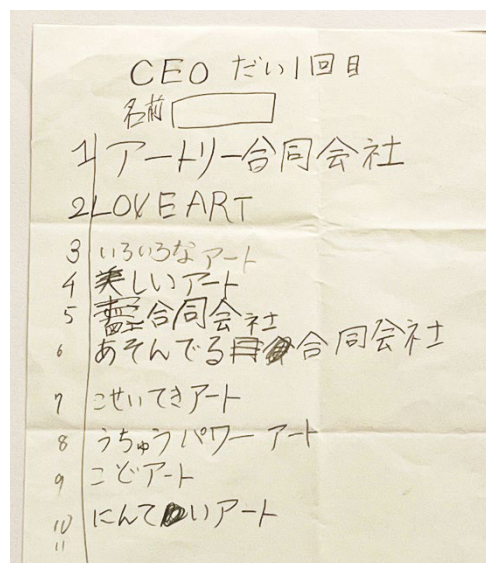 CEO だい1回目
名前
1 アートリー合同会社
2 LOVE ART
3 いろいろなアート
4 美しいアート
5 合同会社
6 あそんでる合同会社
7 こせいてきアート
8 うちゅうパワーアート
9 こどアート
10 にんていアート
11